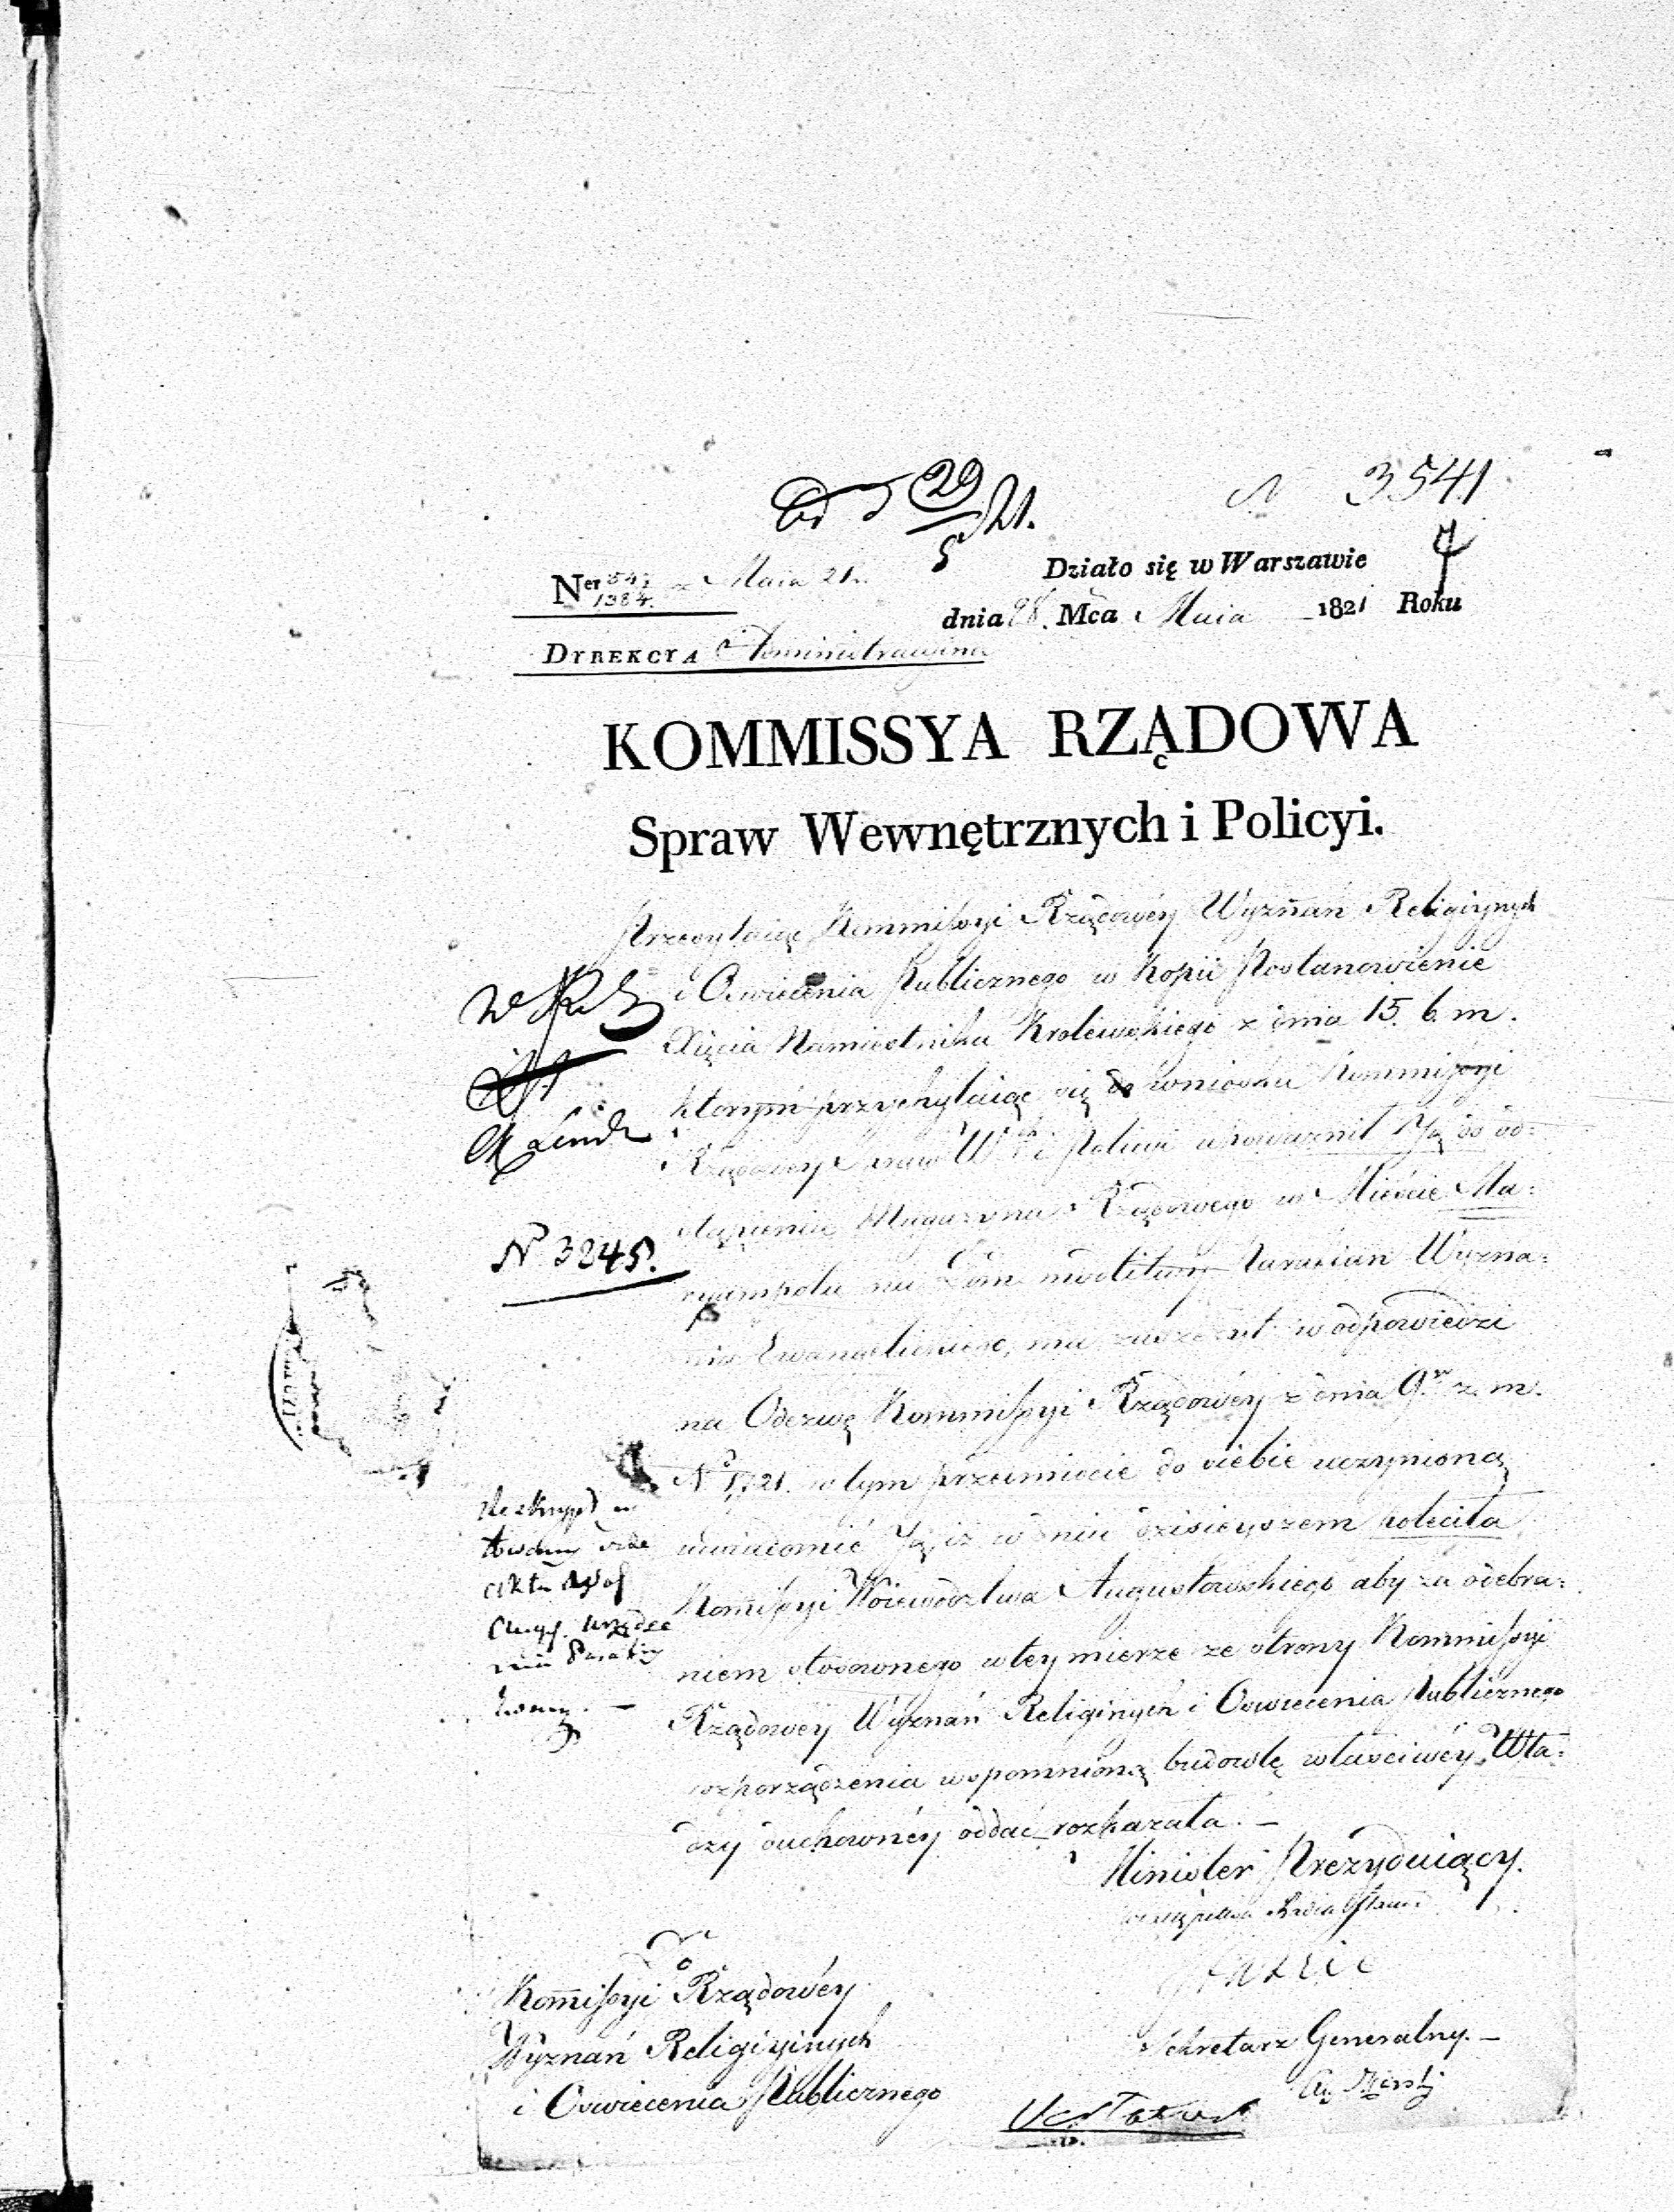 29/5 21.
N 3541
Działo się w Warszawie
Ner 1384. Maia 21.
dnia 28. Mca Maia 1821 Roku
DYREKCYA Administracyjna
KOMMISSYA RZĄDOWA
Spraw Wewnętrznych i Policyi.
Przesyłaiąc Kommissyi Rządowéy Wyznań Religijnych
i Oswiecenia Publicznego w Kopii Postanowienie
Xięcia Namiestnika Krolewskiego z dnia 15. b. m.
którym przychylaiąc się do wniosku Kommissyi
Rządowey Spraw W. i Policyi upoważnił Ją do od:
stąpienia Magazynu Rządowego w Mieście Ma:
ryampolu na Dom modlitwy Parafian Wyzna:
nia Ewangelickiego, ma zaszczyt w odpowiedzi
na Odezwę Kommissyi Rządowéy z dnia 9. z. m.
No 1721. w tym przedmiocie do siebie uczynioną
uwiadomić Ją, iż w dniu dzisieyszem poleciła
Kommissyi Woiewództwa Augustowskiego aby za odebra:
niem stosownego w tey mierze ze strony Kommissyi
Rządowey Wyznań Religinych i Oswiecenia Publicznego
rozporządzenia wspomnioną budowlę właściwéy Wła:
dzy duchownéy oddać rozkazała. —
N 3245.
Minister Prezyduiący.
w zastępstwie Radca Stanu
Sekretarz Generalny. —
Do
Kommissyi Rządowéy
Wyznań Religijinych
i Oswiecenia Publicznego